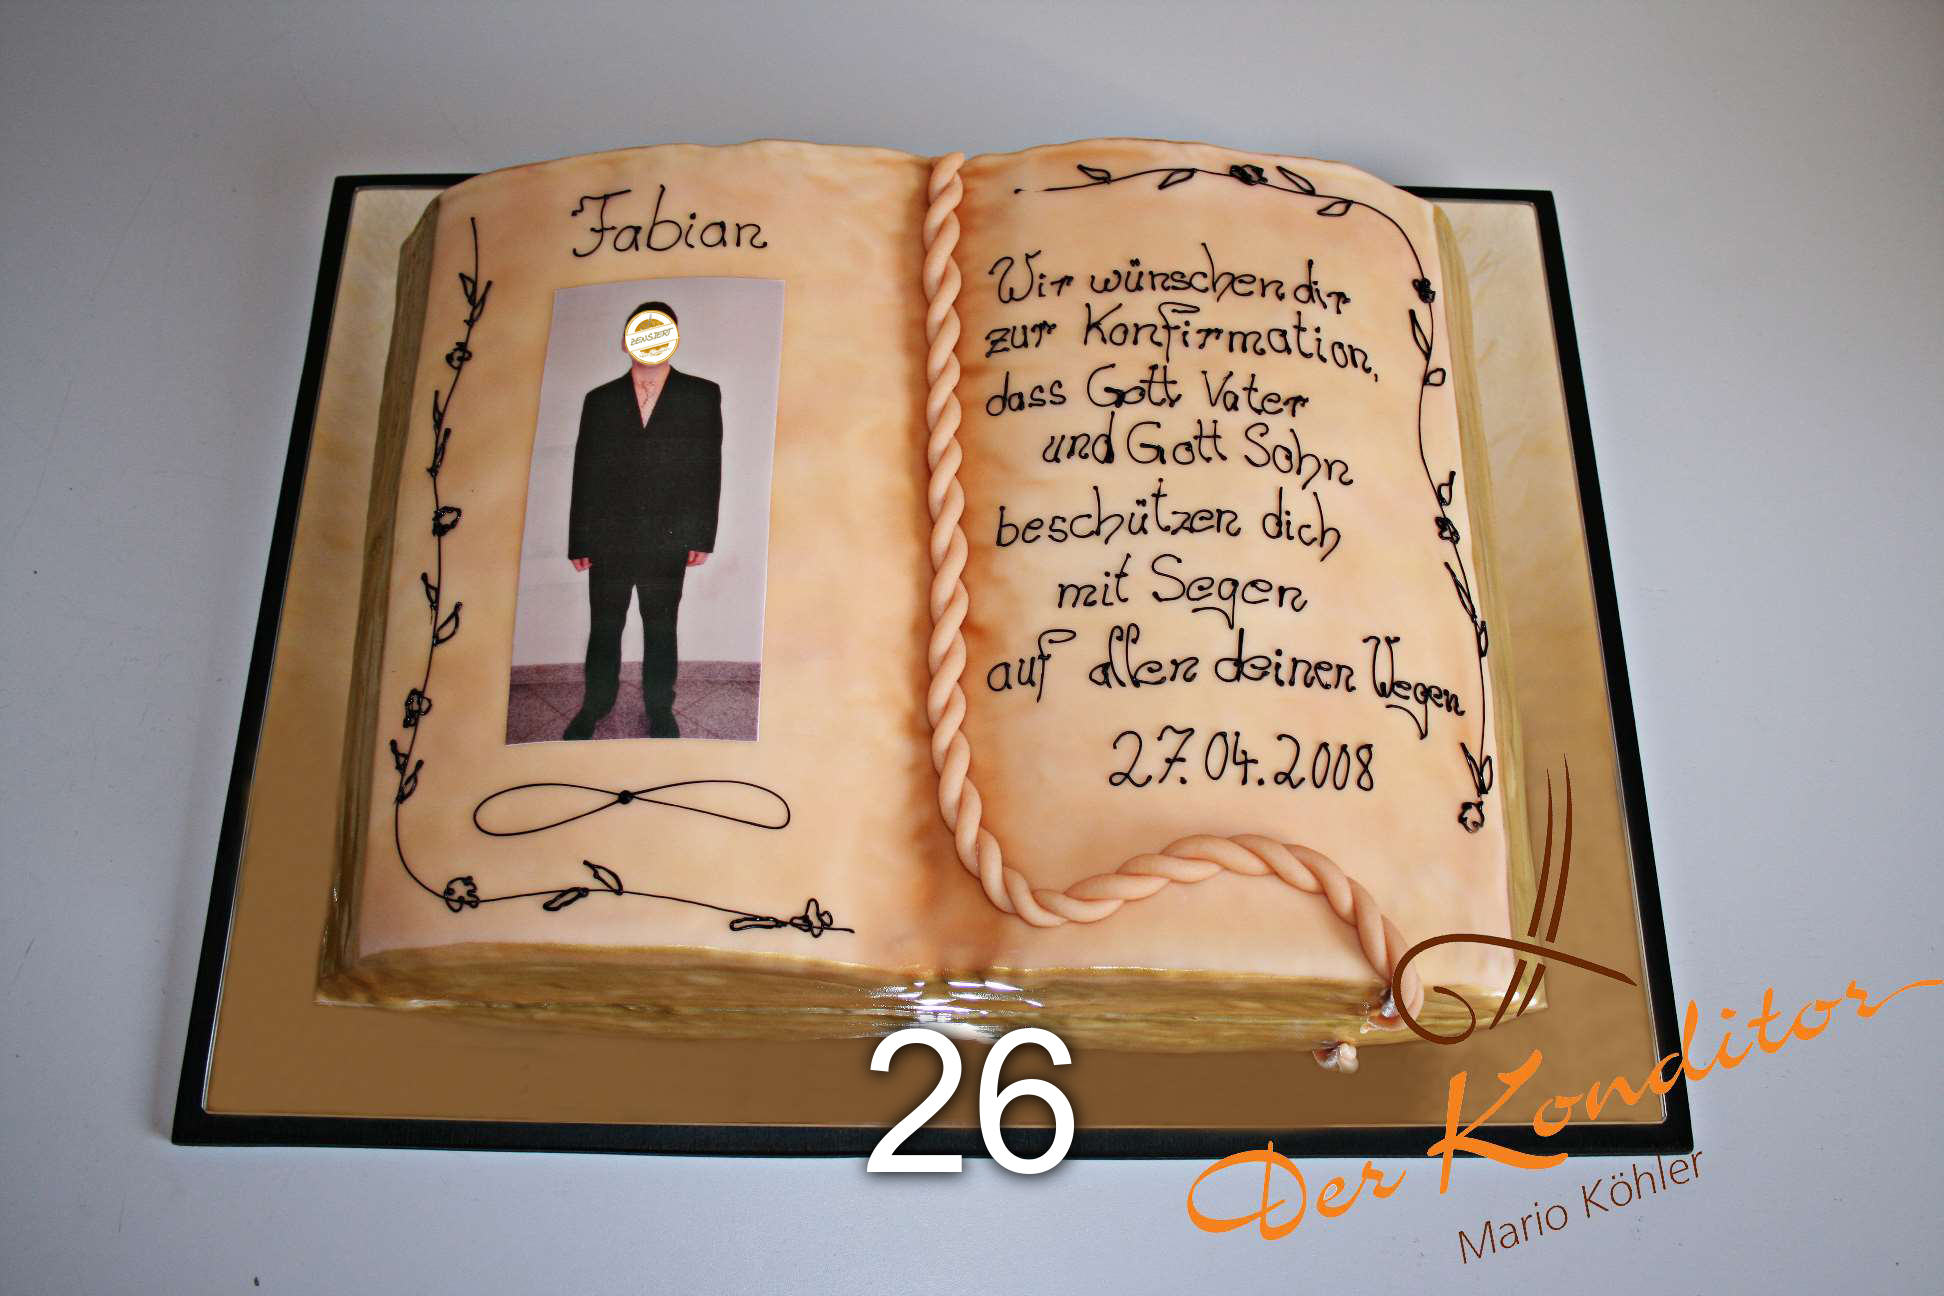 Fabian
ZENSIERT
Wir wünschen dir
zur Konfirmation,
dass Gott Vater
und Gott Sohn
beschützen dich
mit Segen
auf allen deinen Wegen
27.04.2008
26
Der Konditor
Mario Köhler